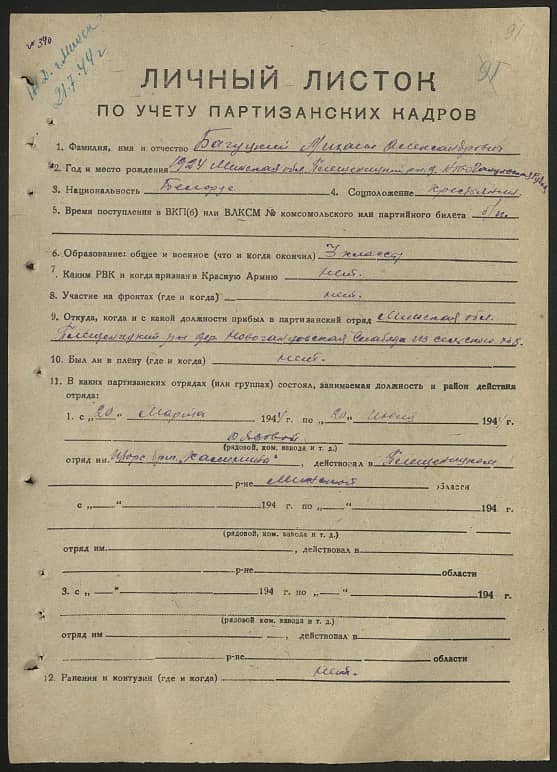 № 390
г. Минск
21.7.44 г
91
91
ЛИЧНЫЙ ЛИСТОК
ПО УЧЕТУ ПАРТИЗАНСКИХ КАДРОВ
1. Фамилия, имя и отчество Багуцкий Михаил Александрович
2. Год и место рождения 1924 Минская обл. Плещеницкий р-н д.
3. Национальность Белорус 4. Соцположение крестьянин
5. Время поступления в ВКП(б) или ВЛКСМ № комсомольского или партийного билета б/п
6. Образование: общее и военное (что и когда окончил) 3 класса
7. Каким РВК и когда призван в Красную Армию нет.
8. Участие на фронтах (где и когда) нет.
9. Откуда, когда и с какой должности прибыл в партизанский отряд Минская обл.
Плещеницкий р-н дер. Слабада из сельского хоз.
10. Был ли в плену (где и когда) нет.
11. В каких партизанских отрядах (или группах) состоял, занимаемая должность и район действия
отряда:
1. с „20“ Марта 1944 г. по „20“ Июля 1944 г.
рядовой
(рядовой, ком. взвода и т. д.)
отряд им. Щорс бриг. , действовал в Плещеницком
р-не Минской области
с „ — “ 194 г. по „ — “ 194 г.
(рядовой, ком. взвода и т. д.)
отряд им. , действовал в
р-не области
3. с „ — “ 194 г. по „ — “ 194 г.
(рядовой ком. взвода и т. д.)
отряд им , действовал в
р-не области
12. Ранения и контузии (где и когда) нет.